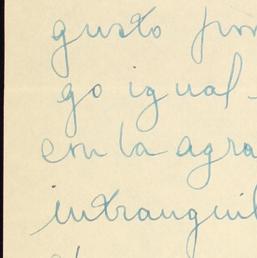 gusto por
go igual-
con la agra
intranquil